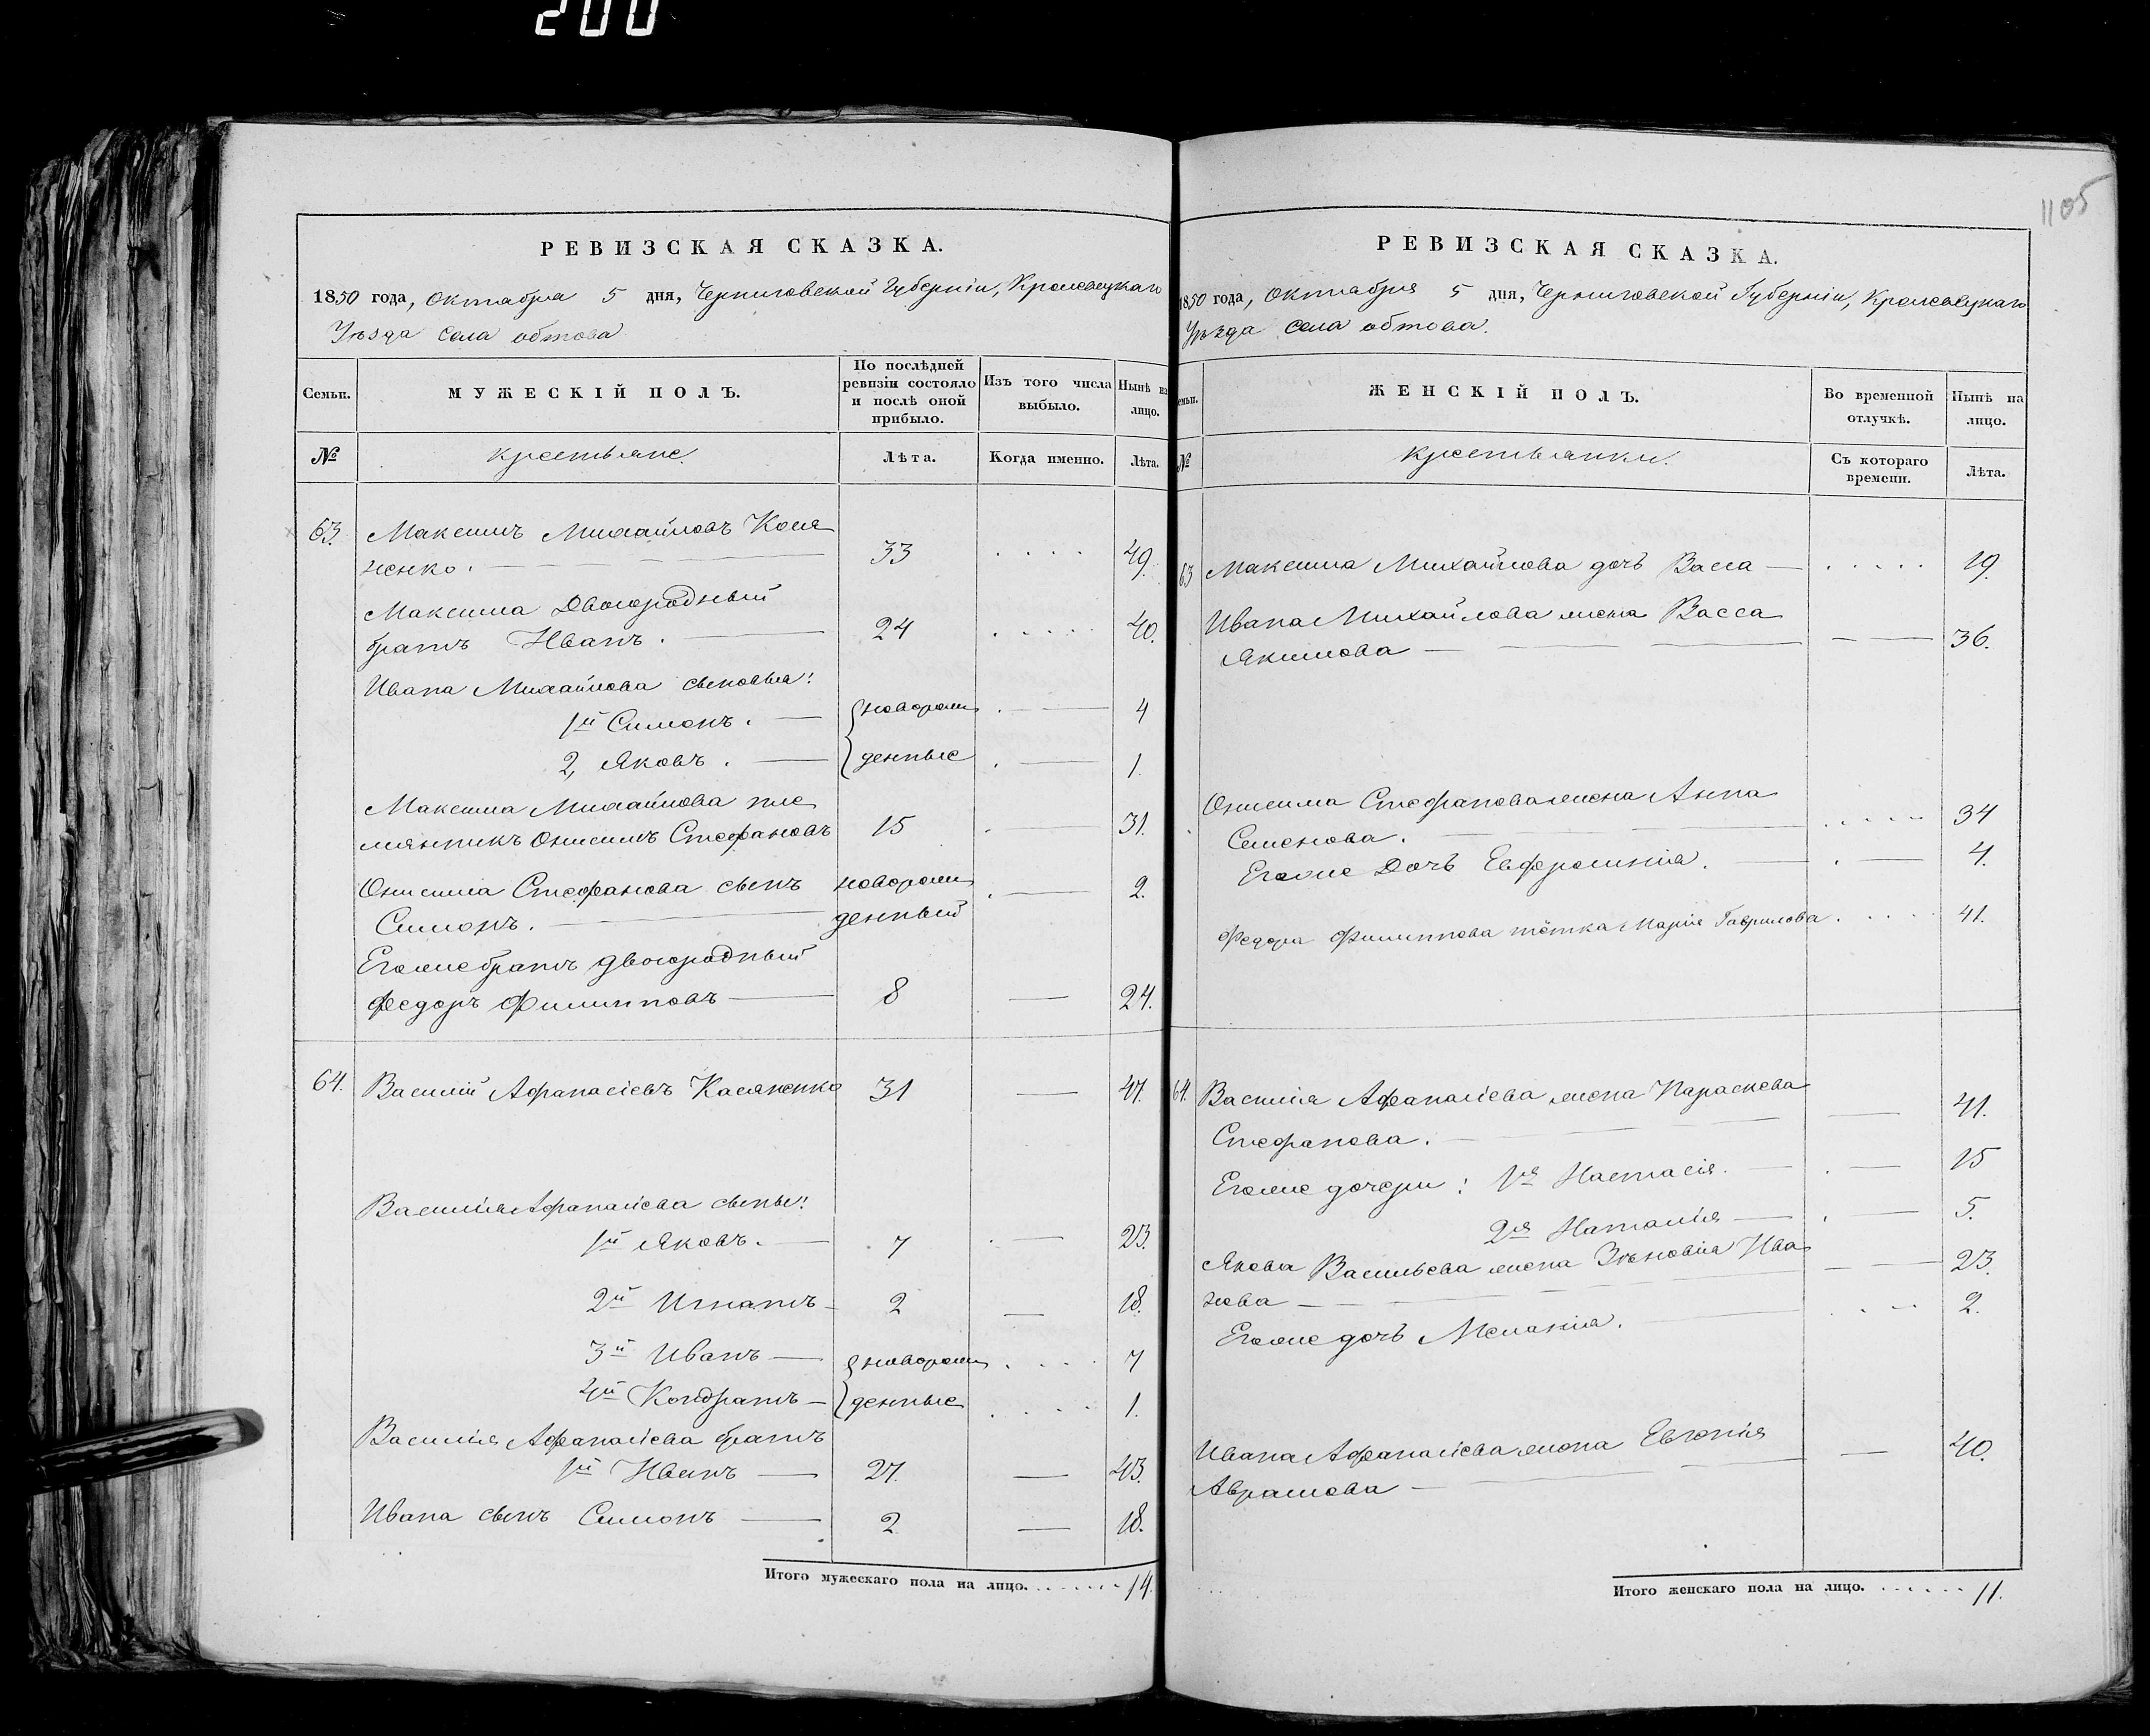 200
1105
РЕВИЗСКАЯ СКАЗКА.
1850 года, Октабря 5 дня, Черниговской Губерніи, Кролевецкаго
Уѣзда Села обтова
Семьи.
МУЖЕСКІЙ ПОЛЪ.
По послѣдней
ревизіи состояло
и послѣ оной
прибыло.
Изъ того числа
выбыло.
Нынѣ на
лицо.
№
крестьяне.
Лѣта.
Когда именно.
Лѣта.
63. Максимъ Михайловъ Кося
ненко. 33 49.
Максима Двоюродный
братъ Иванъ. 24 40.
Ивана Михайлова сыновья:
1й Симонъ. новорож 4
2, Яковъ. денные 1.
Максима Михайлова пле
мянникъ Онисимъ Стефановъ 15 31.
Онисима Стефанова сынъ новорож 2.
Симонъ. денный
Егоже братъ двоюродный
Федоръ Филиповъ 8 24.
64. Василій Афанасіевъ Касяненко 31 47.
Василія Афанасіева сыны:
1й Яковъ. 7 23.
2й Игнатъ 2 18.
3й Иванъ новорож 7
4й Кондратъ денные 1.
Василія Афанасіева братъ
1й Иванъ 27. 43.
Ивана сынъ Симонъ 2 18.
Итого мужескаго пола на лицо. 14.
РЕВИЗСКАЯ СКАЗКА.
1850 года, Октабря 5 дня, Черниговской Губерніи, Кролевецкаго
Уѣзда Села обтова.
емьи.
ЖЕНСКІЙ ПОЛЪ.
Во временной
отлучкѣ.
Нынѣ на
лицо.
№
крестьянки.
Съ котораго
времени.
Лѣта.
63 Максима Михайлова дочь Васса 19.
Ивана Михайлова жена Васса
Якимова 36.
Онисима Стефанова жена Анна
Семенова. 34
Егоже Дочь Евфросинія. 4.
Федора Филиппова тётка Марія Гаврилова. 41.
64. Василія Афанасіева жена Параскева
Стефанова. 41.
Егоже дочери: 1я Настасія. 15
2я Наталія 5.
Якова Васильева жена Зѣновія Ива
нова 23.
Егоже дочь Меланія. 2.
Ивана Афанасіева жена Евгенія
Аврамова 40.
Итого женскаго пола на лицо. 11.